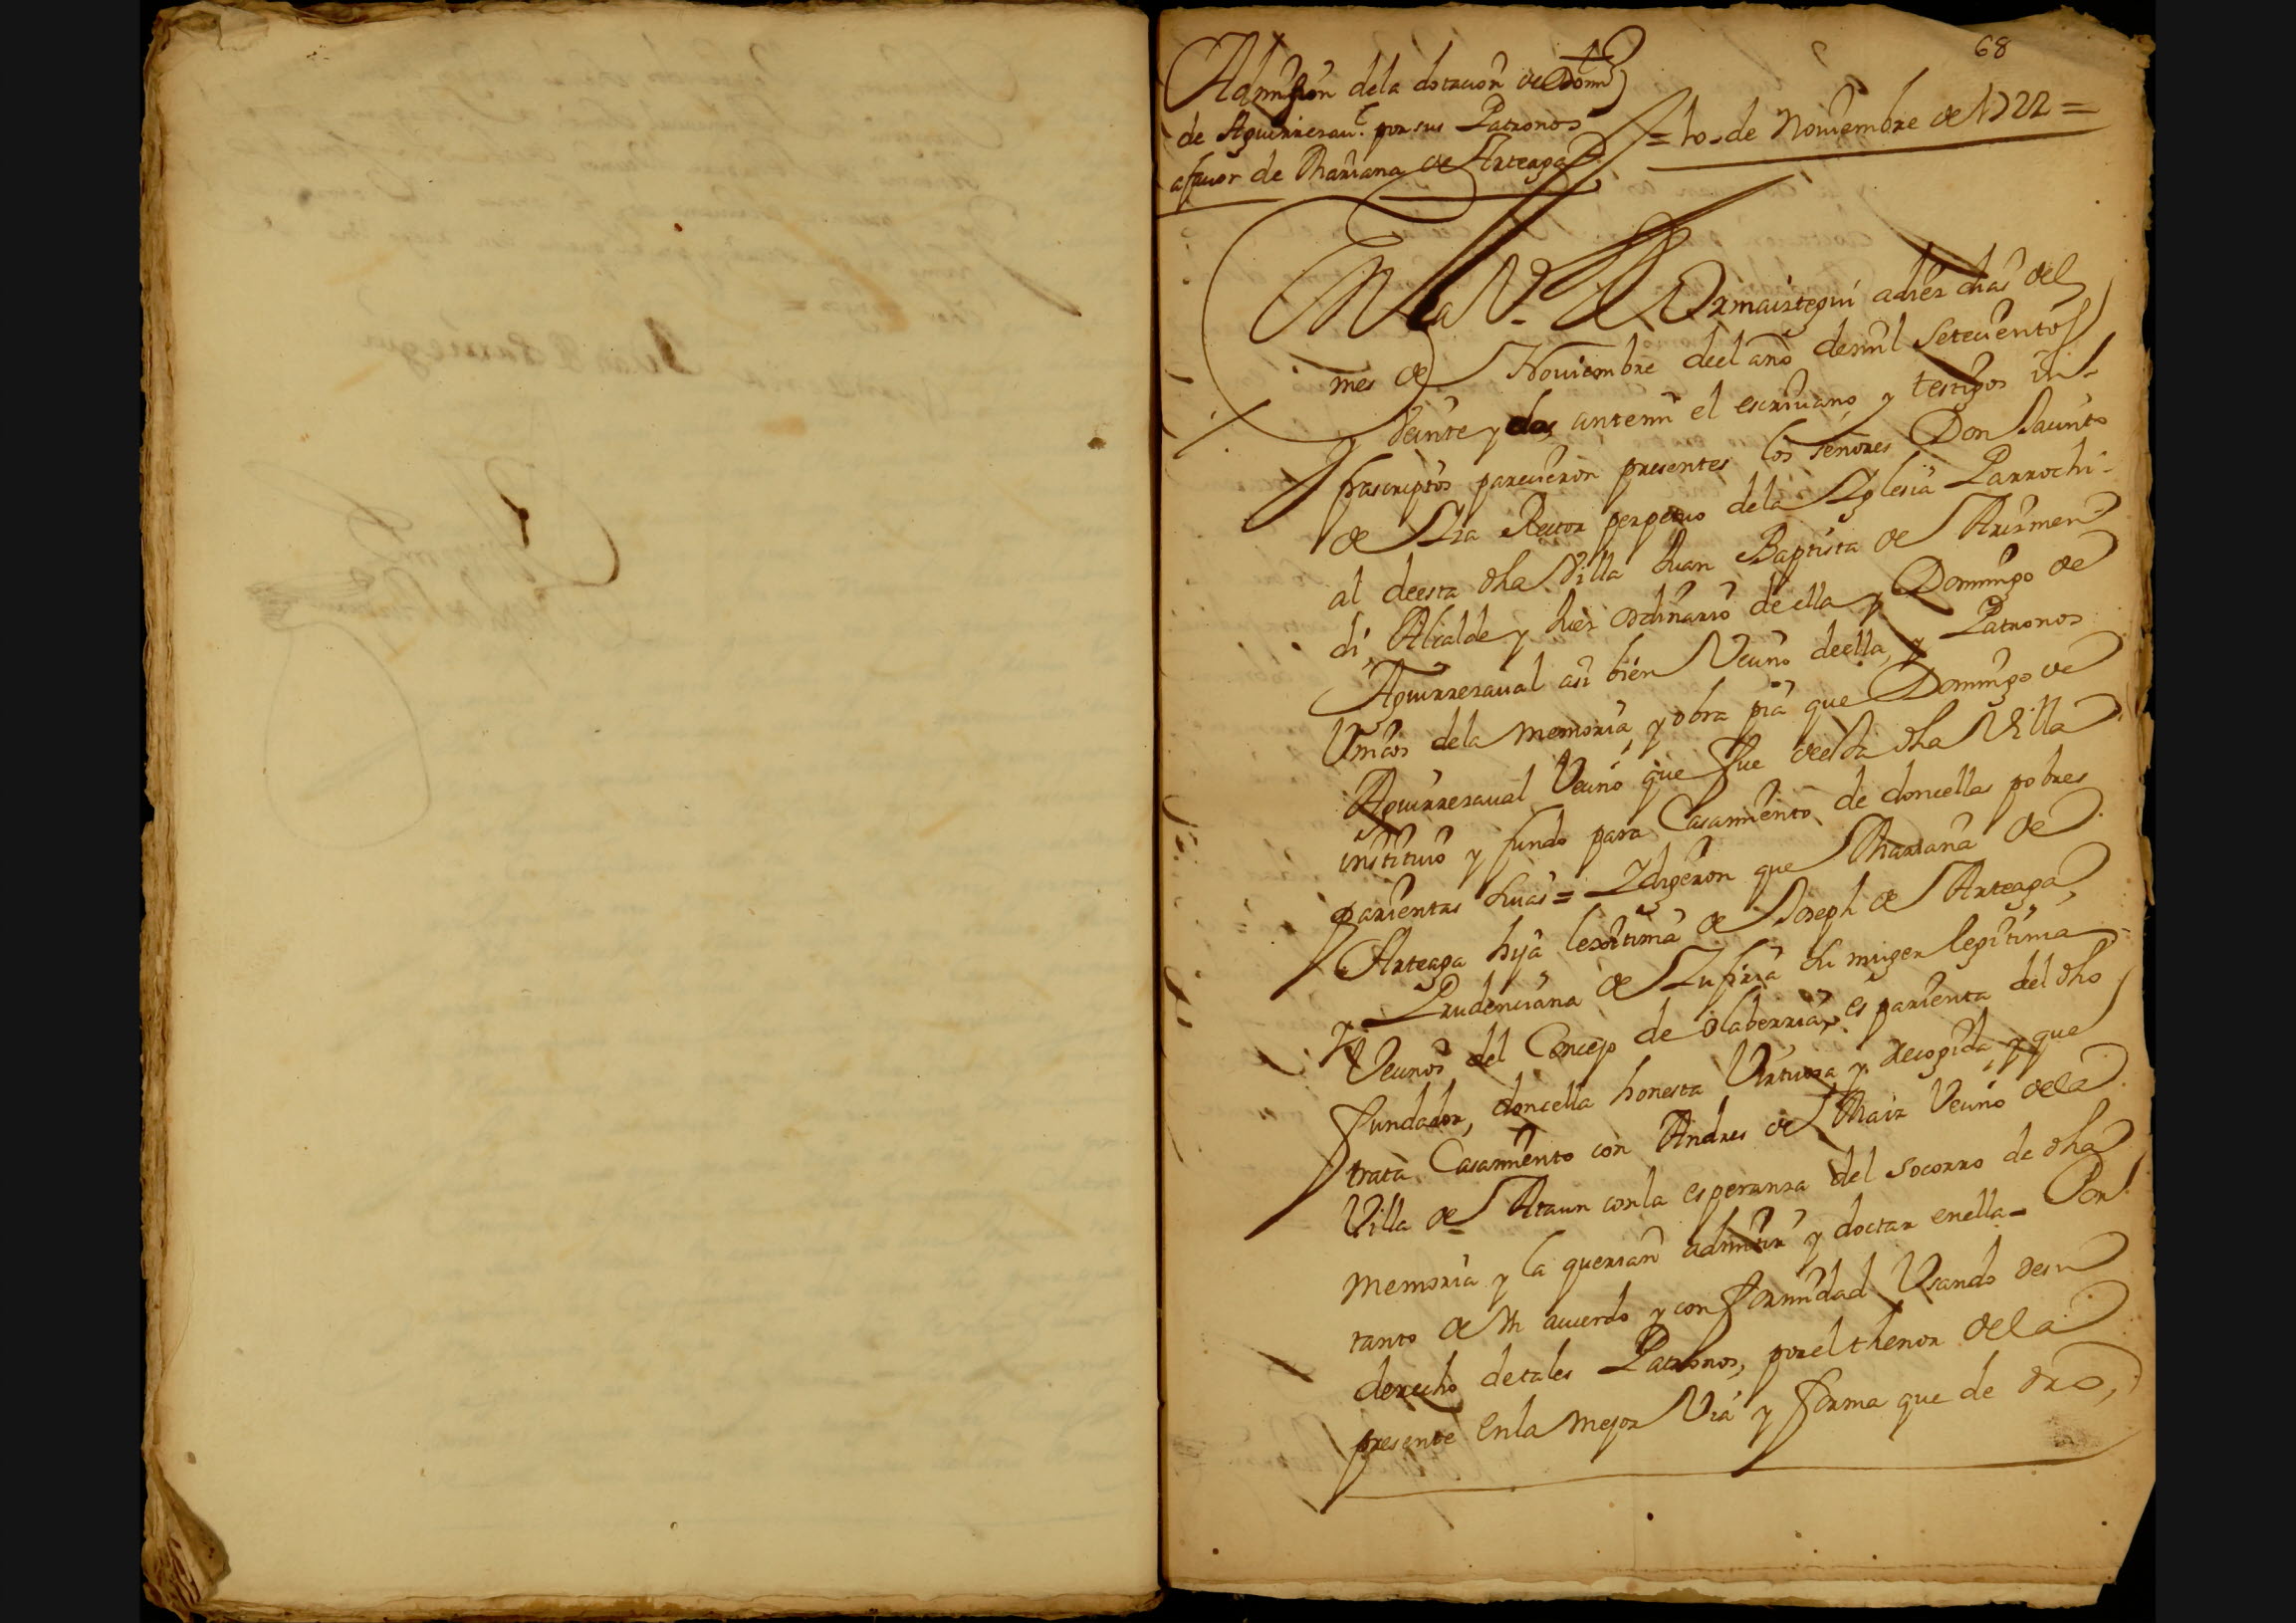 68
Admision dela dotacion de Domº
de Aguirreçaual por sus Patronos
afauor de Mariana de Arteaga
= 10 de Nouiembre de 1722 =
En la Vª de Ormaiztegui adiez dias del
mes de Nouiembre deel año demil Setecientos
y Veinte y dos antemi el escriuano y testigos in-
frascriptos parecieron presentes los señores Don Jacinto
de Liza Rector perpetuo dela Yglesia Parrochi-
al deesta dha Villa Juan Baptista de Arizmen-
di Alcalde y Juez ordinario de ella y Domingo de
Aguirrezaual asi bien Vecino deella, y Patronos
Vnicos dela memoria, y obra pia que Domingo de
Aguirrezaual Vecino que fue deesta dha Villa
instituio y fundo para Casamiento de doncellas pobres
parientas suias = Y dijeron que Mariana de
Arteaga hija lexitima de Joseph de Arteaga,
y Prudenciana de Zufiria su muger legitima
Vecinos del Concejo de olaberria, es parienta del dho
fundador, doncella honesta Virtuosa y recogida, y que
trata Casamiento con Andres de Maiz Vecino dela
Villa de Ataun con la esperanza del socorro de dha
memoria y la querian admitir y doctar enella = Por
tanto de Vn acuerdo y conformidad Vsando desu
derecho detales Patronos, porel thenor dela
presente Enla mejor Via y forma que de dro,